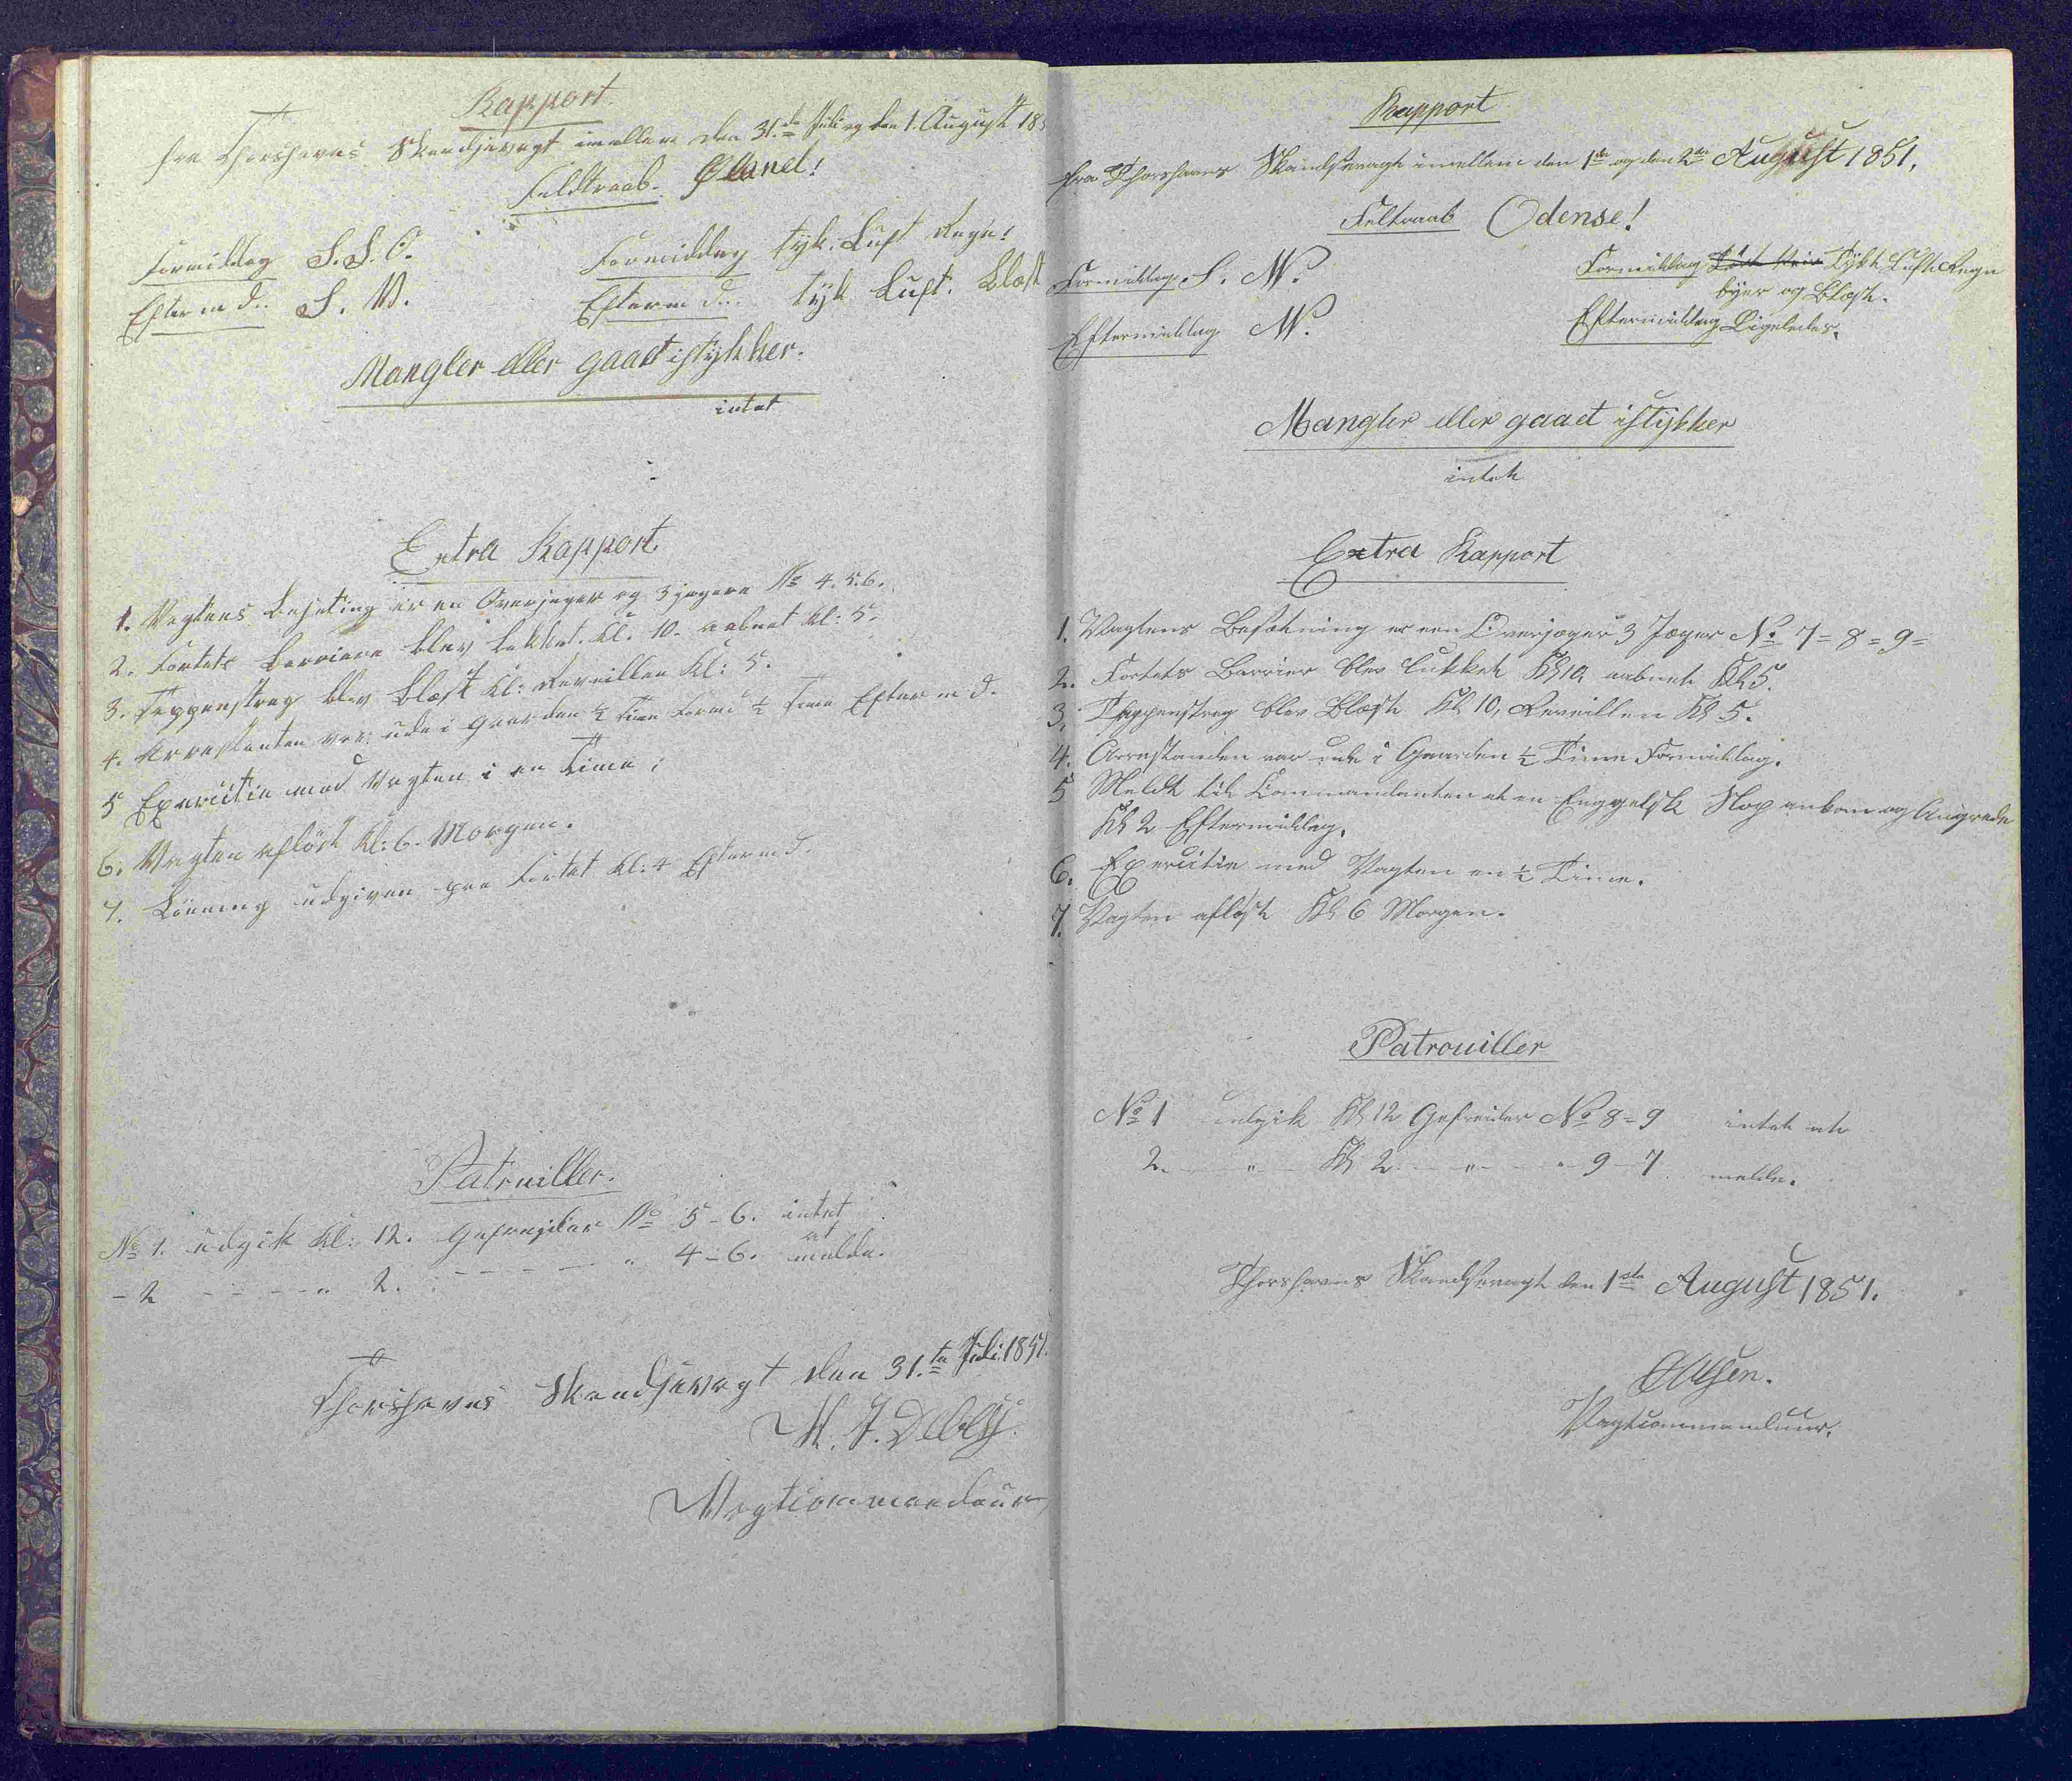 Rapport
fra Thorshavns Skandsevagt imellem den 31.te Juli og den 1. August 185
Feldtraab. Øland!
Formiddag S. S. O.
Formiddag tyk Luft Regn!
Efterm d. S. V.
Efterm d. tyk Luft. Blæst
Mangler eller gaaet istykker.
intet
Extra Rapport.
1. Vagtens Besæting er en Overjæger og 3 jægere No 4. 5. 6.
2. Fortets Barriere blev lukket Kl: 10. aabnet Kl: 5.
3. Tappenstreg blev Blæst Kl: Reveillen Kl: 5.
4. Arrestanten var ude i Gaarden ½ Time Formd ½ Time Efter m d.
5 Exercitie med Vagten i en Time;
6. Vagten aflöst Kl: 6. Morgen.
7. Lönning udgiven paa Fortet Kl: 4 Efterm d.
Patruiller.
No 1. udgik Kl: 12. Gefreider No 5-6. intet
at
- 2 - - - " 2. - - - " 4-6. melde.
Thorshavns Skandsevagt den 31.te Juli 1851.
Vagtcommandeur
Rapport
fra Thorshavns Skandsevagt imellem den 1te og den 2den August 1851.
Feltraab Odense!
Formiddag S. W.
Formiddag Tykt Luft Regn
byer og Blæst.
Eftermiddag W.
Eftermiddag Ligeledes.
Mangler eller gaaet istykker
intet
Extra Rapport
1. Vagtens Besætning er een Overjæger 3 Jæger No 7=8=9=
2. Fortets Barrier blev lukket Kl 10, aabnet Kl 5.
3. Tappenstreg blev Blæst Kl 10, Reveillen Kl 5.
4. Arrestanden var ude i Gaarden ½ Time Formiddag.
5 Meldt til Commandanten at en Enggelsk Slop ankom og Angrede
Kl 2 Eftermiddag.
6. Exercitie med Vagten en ½ Time.
7. Vagten aflöst Kl 6 Morgen.
Patrouiller
No 1 udgik Kl 12 Gefreider No 8=9 intet at
2. - " - Kl 2 - " - " - 9-7 melde.
Thorshavns Skandsevagt den 1ste August 1851.
Vagtcommandeur.